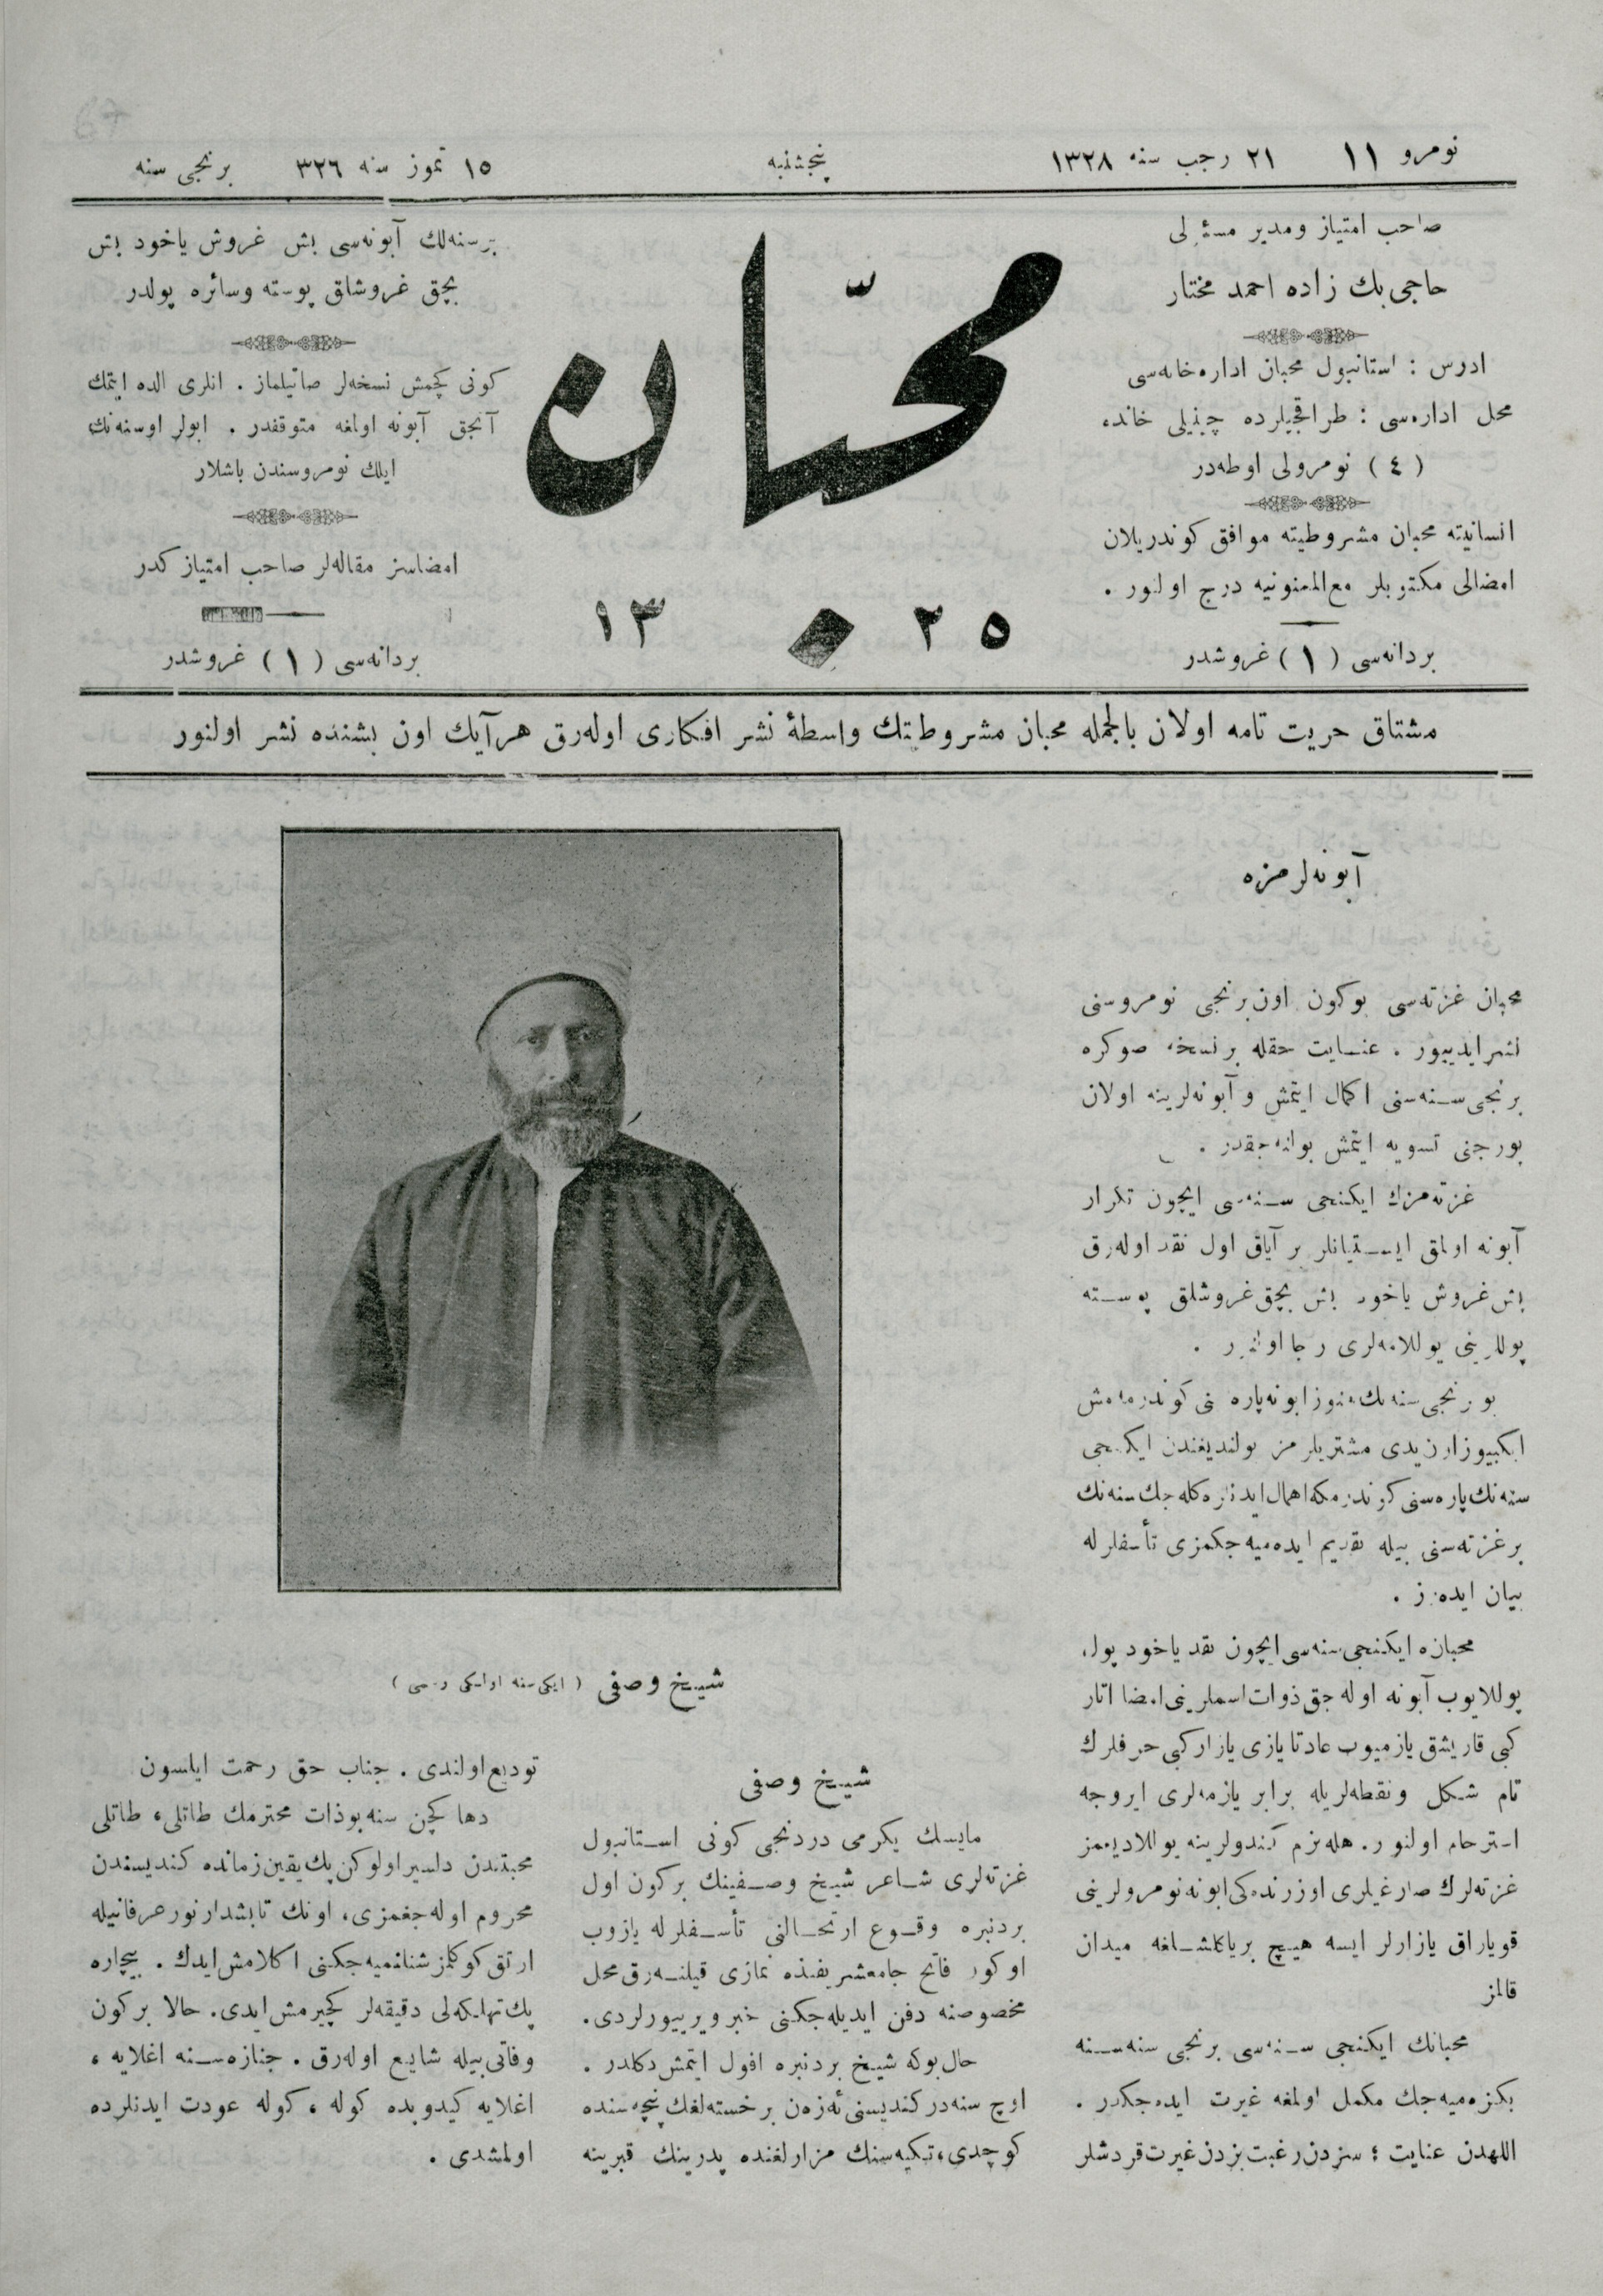 نومرو ١١
٢١ رجب سنه ١٣٢٨
پنجشنبه
١٥ تموز سنه ٣٢٦
برنجی سنه
صاحب امتیاز ومدیر مسئولی
حاجی بك زاده احمد مختار
ادرس : استانبول محبان اداره خانه‌سی
محل اداره‌سی : طراقجیلرده چینیلی خانده
( ٤ ) نومرولی اوطه‌در
انسانیته محبان مشروطیته موافق کوندریلان
امضالی مکتوبلر مع‌الممنونیه درج اولنور .
بردانه‌سی ( ١ ) غروشدر
محبّان
١٣ ٢٥
برسنه‌لك آبونه‌سی بش غروش یاخود بش
بچق غروشلق پوسته وسائره پولدر
کونی کچمش نسخه‌لر صاتیلماز . انلری الده ایتمك
آنجق آبونه اولمغه متوقفدر . ابولر اوسنه‌نك
ایلك نومروسندن باشلار
امضاسز مقاله‌لر صاحب امتیازکدر
بردانه‌سی ( ١ ) غروشدر
مشتاق حریت تامه اولان بالجمله محبان مشروطیتك واسطهٔ نشر افکاری اوله‌رق هرآیك اون بشنده نشر اولنور
آبونه‌لرمزه
محبان غزته‌سی بوکون اون‌برنجی نومروسنی
نشرایدیور . عنایت حقله برنسخه صوکره
برنجی سنه‌سنی اکمال ایتمش و آبونه‌لرینه اولان
بورجنی تسویه ایتمش بولنه‌جقدر .
غزته‌مزك ایکنجی سنه‌سی ایچون تکرار
آبونه اولمق ایستیانلر بر آیاق اول نقد اوله‌رق
بش غروش یاخود بش بچق غروشلق پوسته
پوللرینی یوللامه‌لری رجا اولنور .
بو برنجی سنه‌نك هنوز ابونه پاره‌نی کوندرمه‌مش
ایکییوز اون‌یدی مشتریلرمز بولندیغندن ایکنجی
سنه‌نك پاره‌سنی کوندرمکه اهمال ایدنلره کله‌جك سنه‌نك
برغزته‌سنی بیله تقدیم ایده‌میه‌جکمزی تأسفلرله
بیان ایده‌رز .
محبانه ایکنجی سنه‌سی ایچون نقد یاخود پول
یوللایوب آبونه اوله‌جق ذوات اسملرینی امضا اتار
کبی قاریشق یازمیوب عادتا یازی یازارکبی حرفلرك
تام شکل ونقطه‌لریله برابر یازمه‌لری ایروجه
استرحام اولنور. هله بزم کندولرینه یوللادیغمز
غزته‌لرك صارغیلری اوزرنده‌کی ابونه نومرولرینی
قویاراق یازارلر ایسه هیچ بریاکلشلغه میدان
قالمز
محبانك ایکنجی سنه‌سی برنجی سنه‌سنه
بکزه‌میه‌جك مکمل اولمغه غیرت ایده‌جکدر .
اللهدن عنایت ؛ سزدن رغبت بزدن غیرت قردشلر
شیخ وصفی ( ایکی سنه اولکی رسمی )
شیخ وصفی
مایسك یکرمی دردنجی کونی استانبول
غزته‌لری شاعر شیخ وصفینك برکون اول
بردنبره وقوع ارتحالنی تأسفلرله یازوب
اوکون فاتح جامعشریفنده نمازی قیلنه‌رق محل
مخصوصنه دفن ایدیله‌جکنی خبر ویریبورلردی.
حال بوکه شیخ بردنبره افول ایتمش دکلدر .
اوچ سنه‌در کندیسنی ئه‌زه‌ن برخسته‌لغك پنچه‌سنده
کوچدی، تکیه‌سنك مزارلغنده پدرینك قبرینه
تودیع اولندی . جناب حق رحمت ایلسون
دها کچن سنه بوذات محترمك طاتلی، طاتلی
محبتندن دلسیر اولوکن پك یقین زمانده کندیسندن
محروم اوله‌جغمزی، اونك تابشدار نور عرفانیله
ارتق کوکلمز شنلنمیه‌جکنی اکلامش ایدك . بیچاره
پك تهلکه‌لی دقیقه‌لر کچیرمش ایدی. حالا برکون
وفاتی بیله شایع اوله‌رق . جنازه‌سنه اغلایه ،
اغلایه کیدوبده کوله ، کوله عودت ایدنلرده
اولمشدی .